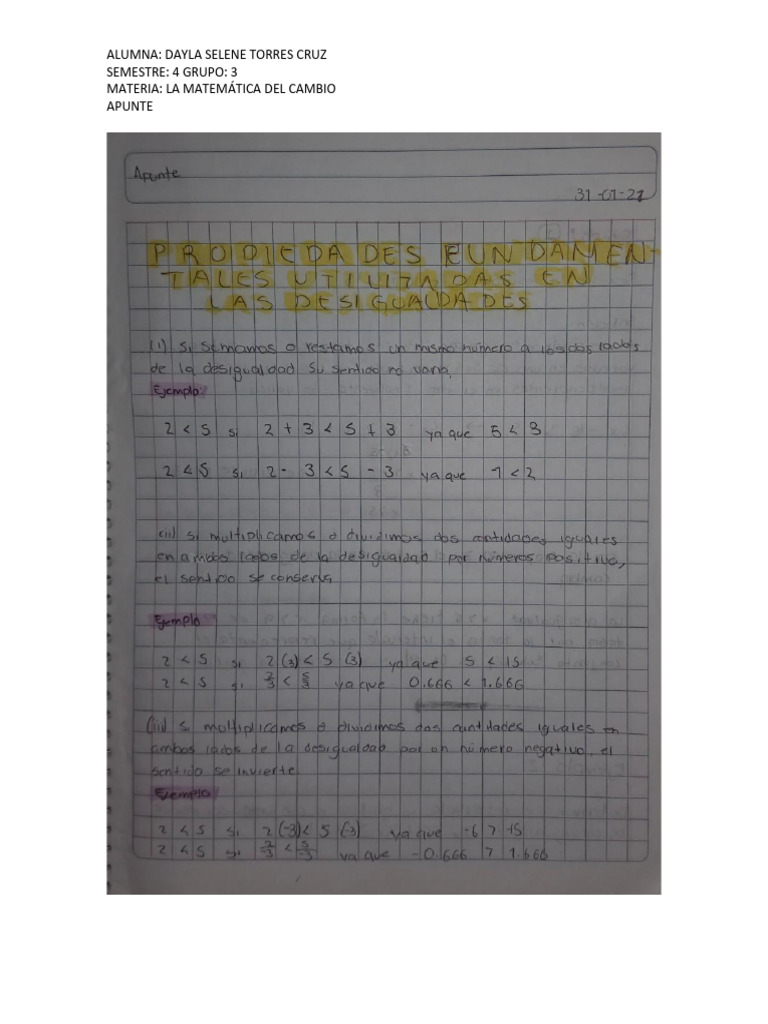 ALUMNA: DAYLA SELENE TORRES CRUZ
SEMESTRE: 4 GRUPO: 3
MATERIA: LA MATEMÁTICA DEL CAMBIO
APUNTE
Apunte
31-01-21
PROPIEDADES FUNDAMEN-
TALES UTILIZADAS EN
LAS DESIGUALDADES
(i) Si semamos o restamos un mismo número a los dos lados
de la desigualdad su sentido no varia.
Ejemplo:
2 < 5 si 2 + 3 < 5 + 3 ya que 5 < 8
2 < 5 si 2 - 3 < 5 - 3 ya que 1 < 2
(ii) si multiplicamos o dividimos dos cantidades iguales
en ambos lados de la desigualdad por números positivo,
el sentido se conserva
Ejemplo
2 < 5 si 2 (3) < 5 (3) ya que 5 < 15
2 < 5 si 2/3 < 5/3 ya que 0.666 < 1.666
(iii) si multiplicamos o dividimos dos cantidades iguales en
ambos lados de la desigualdad por un número negativo, el
sentido se invierte.
Ejemplo
2 < 5 si 2 (-3) < 5 (-3) ya que -6 > -15
2 < 5 si 2/-3 < 5/-3 ya que -0.666 > 1.666